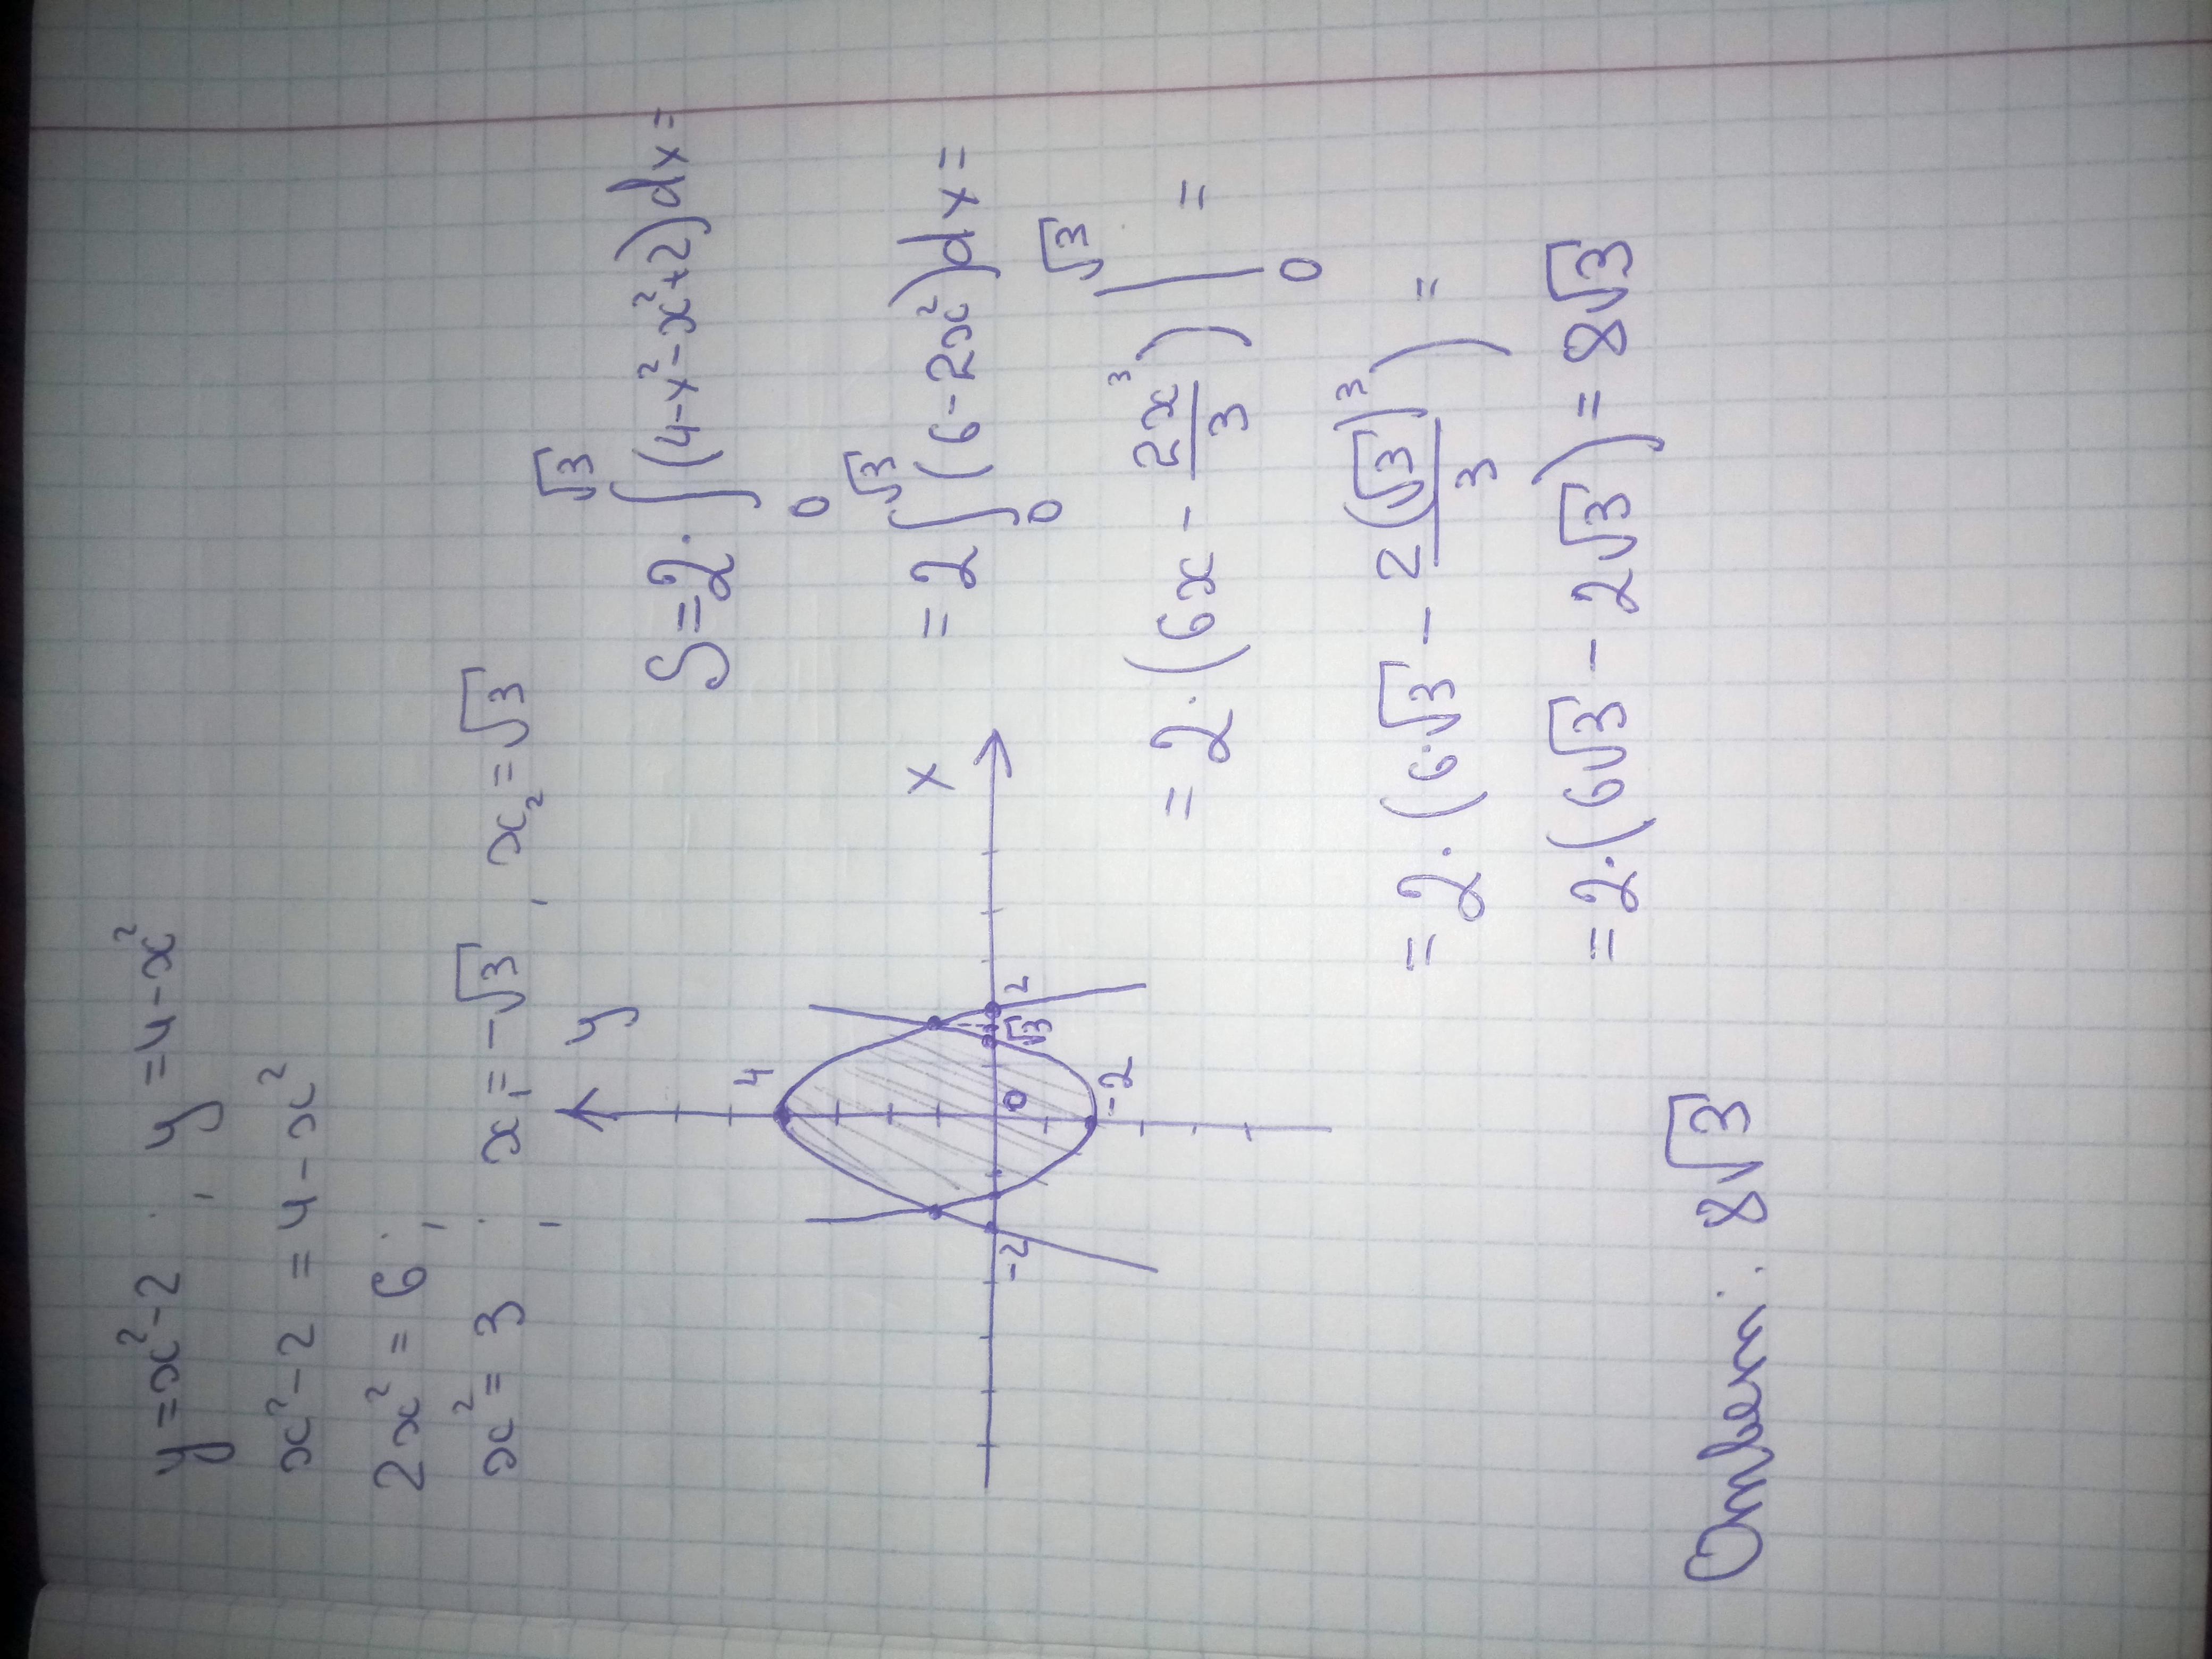 y = x² - 2 ; y = 4 - x²
x² - 2 = 4 - x²
2x² = 6 ;
x² = 3 ; x₁ = -√3 , x₂ = √3
y
4
x
-2
0
√3
2
-2
S = 2 · ∫₀^√3 (4 - x² - x² + 2) dx =
= 2 ∫₀^√3 (6 - 2x²) dx =
= 2 · (6x - 2x³/3) |₀^√3 =
= 2 · (6·√3 - 2(√3)³/3) =
= 2 · (6√3 - 2√3) = 8√3
Ответ: 8√3